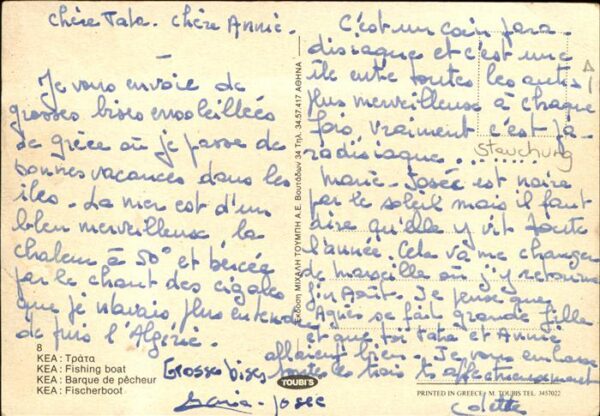 Chère Tata. Chère Annie.
Je vous envoie de
grosses bises ensoleillées
de grèce où je passe de
bonnes vacances dans les
îles. La mer est d'un
bleu merveilleuse, la
chaleur à 50° et bercée
par le chant des cigales
que je n'avais plus entendu
depuis l'Algérie.
C'est un coin para-
disiaque et c'est une
île entre toutes les autres
plus merveilleuse à chaque
fois, vraiment c'est pa-
radisiaque.........
Stauchung
Marie-Josée est noire
par le soleil mais il faut
dire qu'elle y vit toute
l'année. Cela va me changer
de marseille où j'y retourne
fin Août. Je pense que
Agnès se fait grande fille
et que toi tata et Annie
allaient bien. Je vous embrasse
toutes les trois affectueusement
Colette
Grosses bises
Maria-Josée
8
KEA : Τράτα
KEA : Fishing boat
KEA : Barque de pêcheur
KEA : Fischerboot
Εκδοση ΜΙΧΑΛΗ ΤΟΥΜΠΗ Α.Ε. Βουτάδων 34 Τηλ. 34.57.417 ΑΘΗΝΑ
TOUBI'S
PRINTED IN GREECE - M. TOUBIS TEL. 3457022